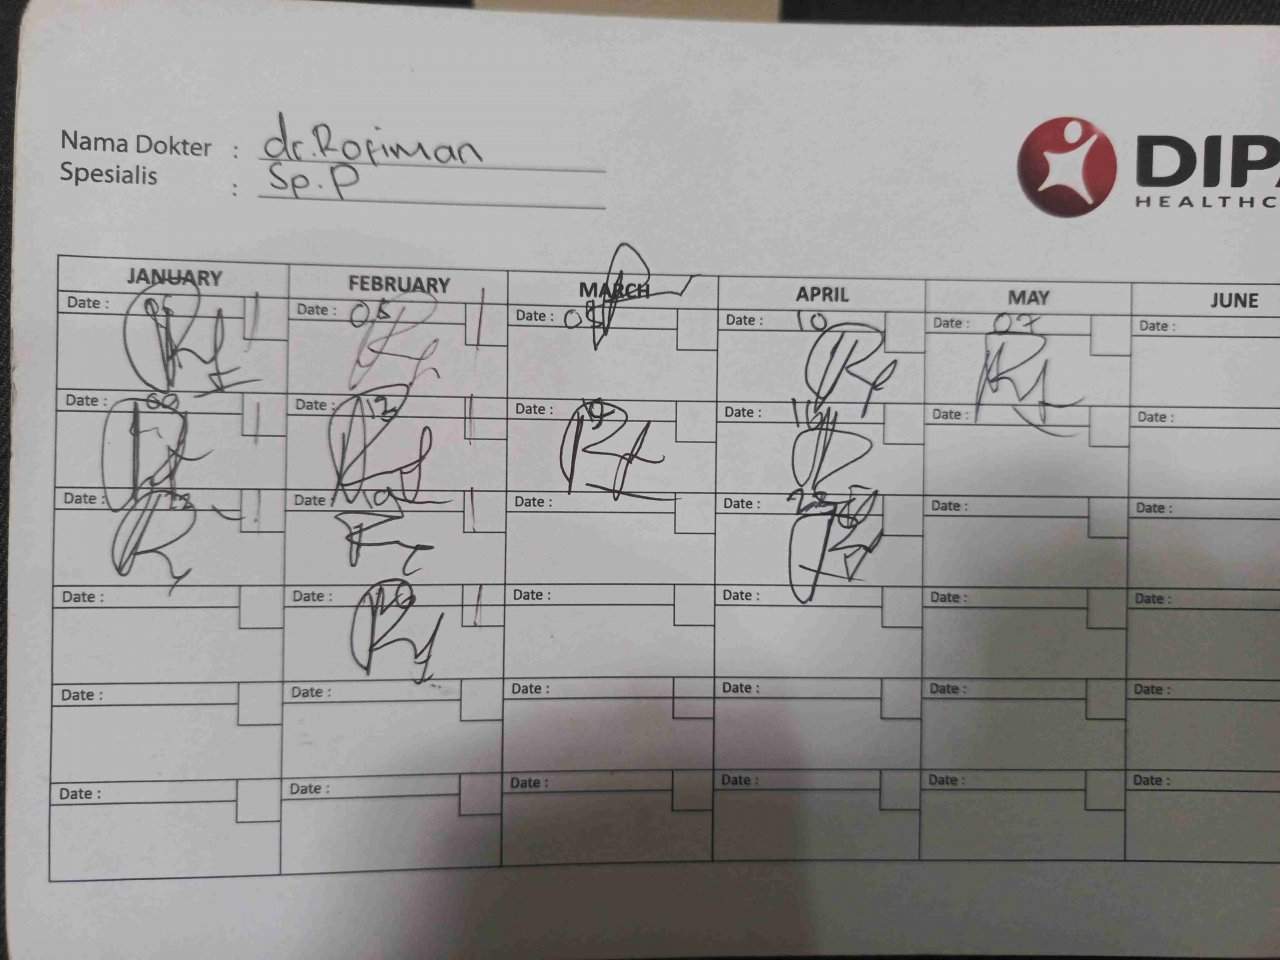 Nama Dokter : dr. Rofiman
Spesialis : Sp.P
DIPA
HEALTHC
JANUARY FEBRUARY MARCH APRIL MAY JUNE
Date : 05 Date : 05 Date : Date : 10 Date : 07 Date :
Date : Date : 12 Date : Date : 16 Date : Date :
Date : 22 Date : 19 Date : Date : 23 Date : Date :
Date : Date : Date : Date : Date : Date :
Date : Date : Date : Date : Date : Date :
Date : Date : Date : Date : Date : Date :